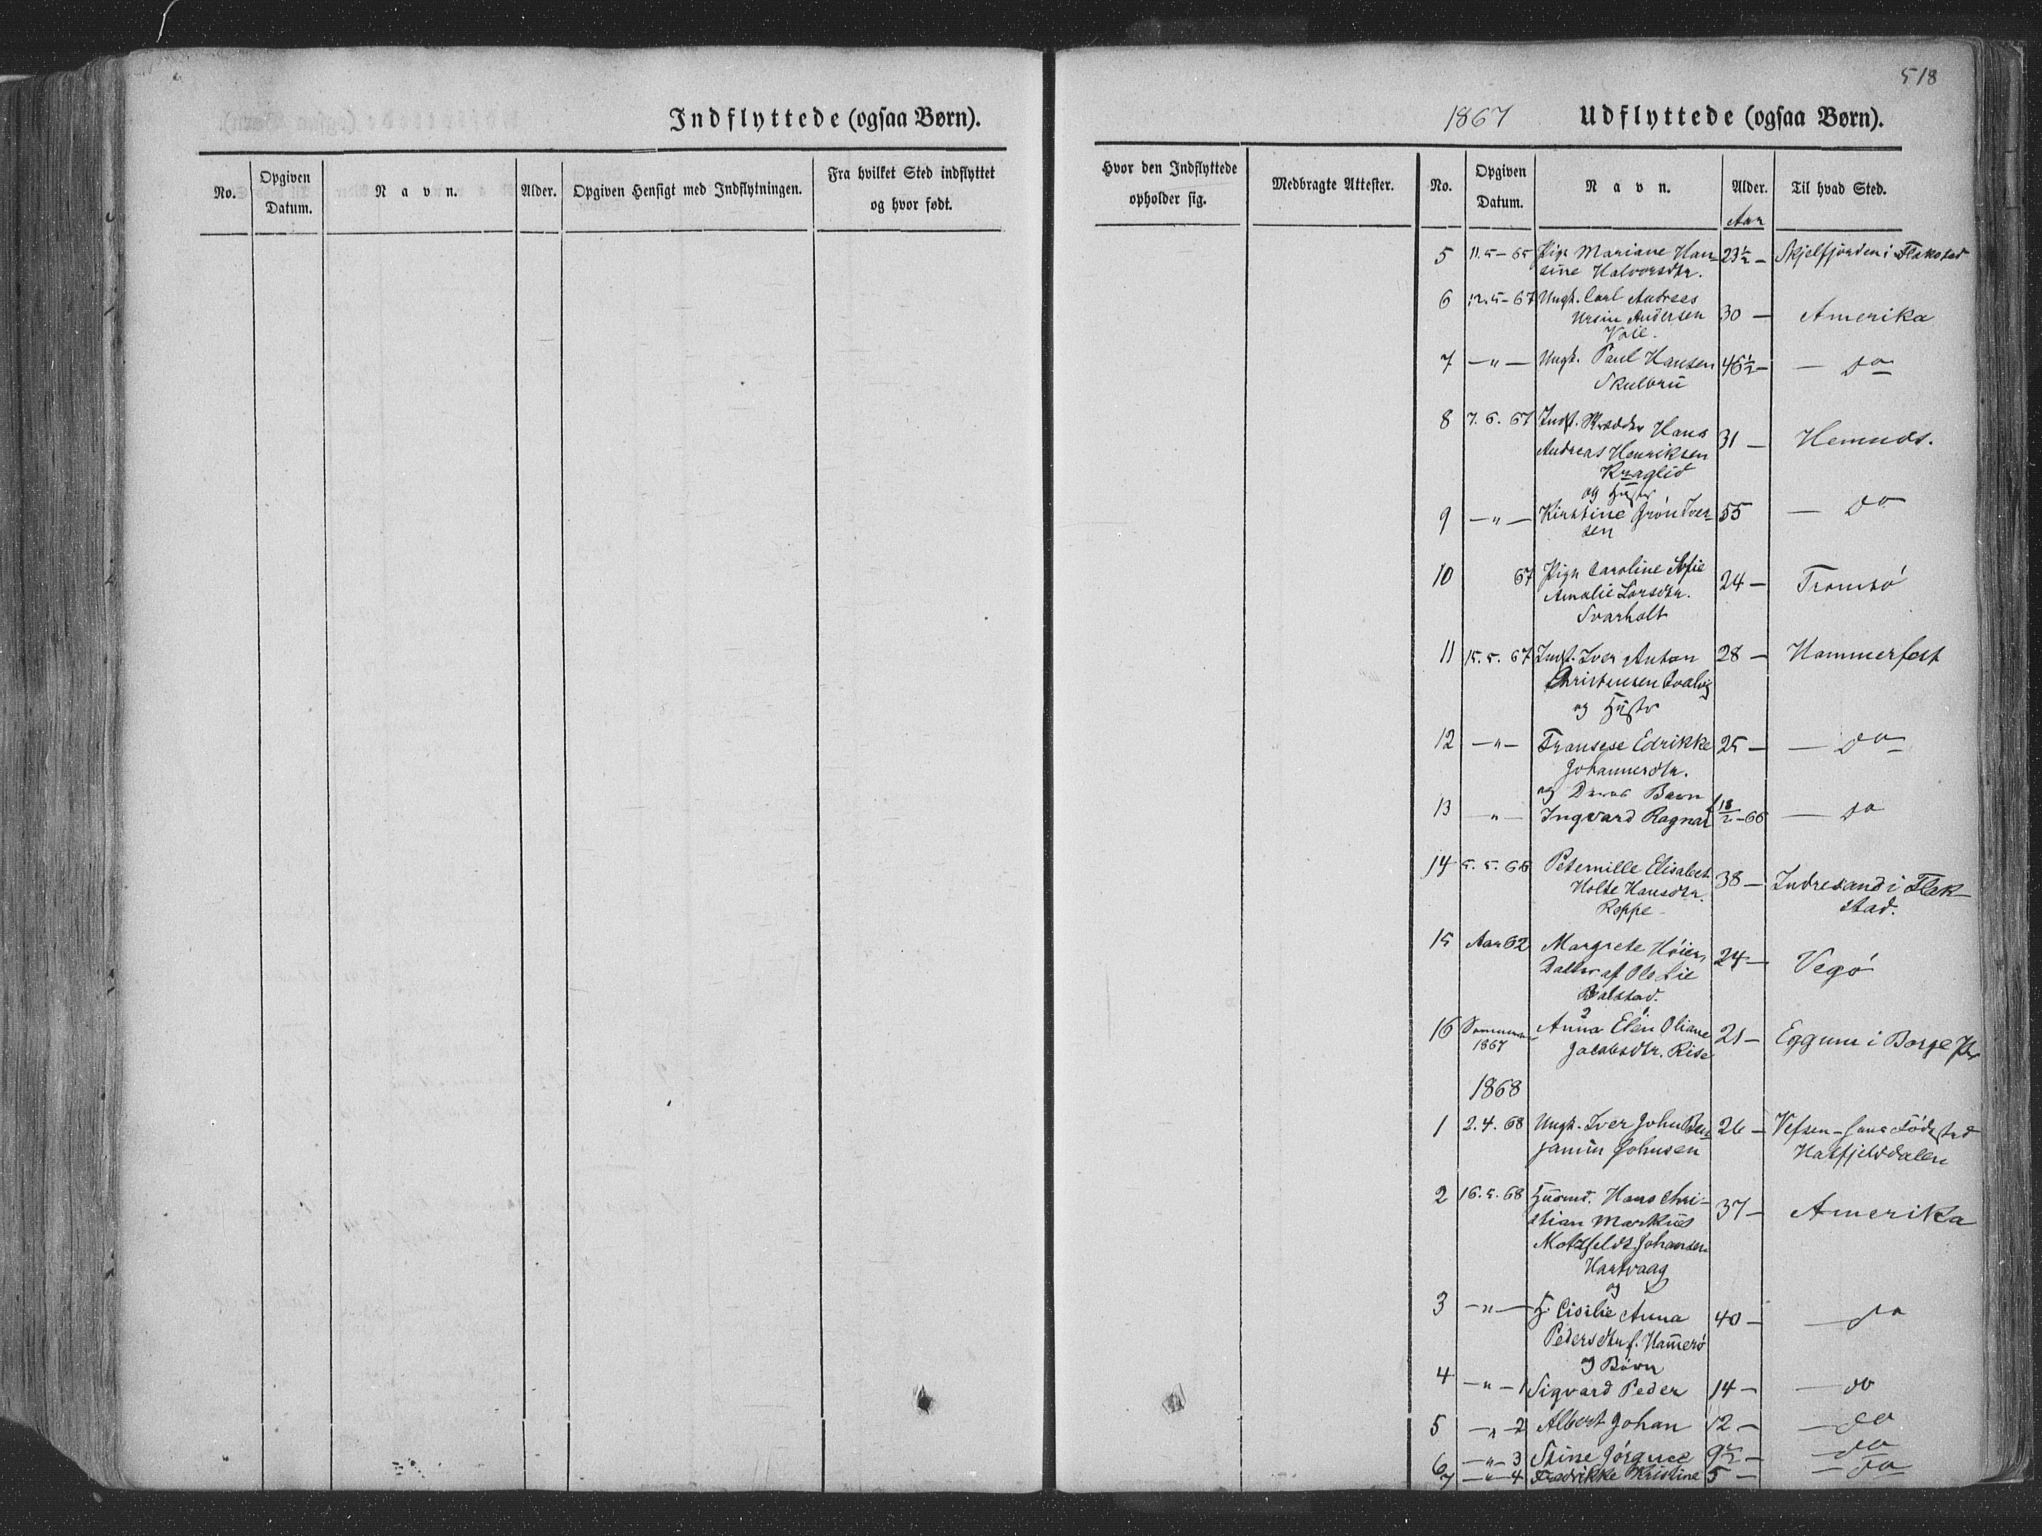 518
Indflyttede (ogsaa Børn).
No.
Opgiven
Datum.
Navn.
Alder.
Opgiven Hensigt med Indflytningen.
Fra hvilket Sted indflyttet
og hvor født.
1867 Udflyttede (ogsaa Børn).
Hvor den Indflyttede
opholder sig.
Medbragte Attester.
No.
Opgiven
Datum.
Navn.
Alder.
Til hvad Sted.
Aar
5 11.5-65 Pige Mariane Han- 23½ - Skjelfjorden i Flakstad
sine Halvorsdtr.
6 12.5-67 Ungk. Carl Andreas
Ursin Andersen 30 - Amerika
Voie.
7 -"- Ungk. Paul Hansen 46½ - - do -
Skulbru
8 7.6.67 Indst. Hans
Andreas Henriksen 31 - Hemnæs.
Kraglid
og Hustr
9 -"- Kirstine Grön Iver- 55 - do
sen
10 67 Pige Caroline Sofie
Amalie Larsdtr. 24 - Tromsö
Svarholt
11 15.5.67 Indst. Iver Anton 28 - Hammerfest
Christensen
og Hustr
12 -"- Fransese Edrikke 25 - - do -
Johannesdtr.
og Deres Barn
13 -"- Ingvard Ragnar f 18/2-66 - do
14 5.5.66 Peternille Elisabet
Holte Hansdtr. 38 - Indresand i Flak-
Reppe stad.
15 Aar 62 Margrete Höier,
Datter af Ole Lie 24 - Vegö
Balstad.
16 Sommeren Anna Elen Oliane 21 - Eggum i Borge Pr
1867 Jacobsdtr. Rise
1868
1 2.4.68 Ungk. Iver Johu Ben- 26 - Vefsen - hans Födested
jamin Johnsen Hatfjelddalen
2 16.5.68 Husmd. Hans Chri-
stian Markus 37 - Amerika
Motzfeldt Johansen
Hartvaag
og
3 -"- H. Cisilie Anna 40 - - do
Pedersdtr f. Hamerö
og Börn
4 -"- 1 Sigvard Peder 14 - - do
5 -"- 2 Albert Johan 12 - - do
6 -"- 3 Stine Jörgine 9½ - - do
7 -"- 4 Fredrikke Kristine 5 - - do